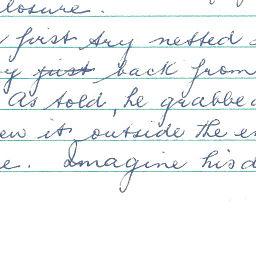 closure.
first try netted
just back from
As told, he grabbed
ew it outside the e
e. Imagine his d